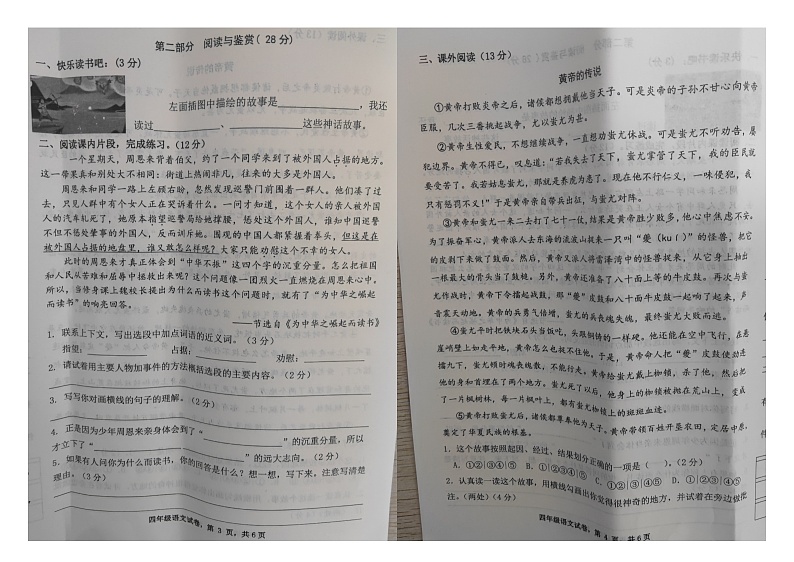 第二部分 阅读与鉴赏(28分)
一、快乐读书吧：(3分)
左面插图中描绘的故事是____________，我还
读过____________、____________这些神话故事。
二、阅读课内片段，完成练习。(12分)
一个星期天，周恩来背着伯父，约了一个同学来到了被外国人占据的地方。
这一带果真和别处大不相同：街道上热闹非凡，往来的大多是外国人。
周恩来和同学一路上左顾右盼，忽然发现巡警门前围着一群人。他们凑了过
去，只见人群中有个女人正在哭诉着什么。一问才知道，这个女人的亲人被外国
人的汽车轧死了，她原本指望巡警局给她撑腰，惩处这个外国人，谁知中国巡警
不但不惩处肇事的外国人，反而训斥她。围观的中国人都紧握着拳头，但这是在
被外国人占据的地盘里，谁又敢怎么样呢？大家只能劝慰这个不幸的女人。
此时的周恩来才真正体会到“中华不振”这四个字的沉重分量。怎么把祖国
和人民从苦难和屈辱中拯救出来呢？这个问题像一团烈火一直燃烧在周恩来心中。
所以，当修身课上魏校长提出为什么而读书这个问题时，就有了“为中华之崛起
而读书”的响亮回答。
——节选自《为中华之崛起而读书》
1. 联系上下文，写出选段中加点词语的近义词。(3分)
指望：____________ 占据：____________ 劝慰：____________
2. 请试着用主要人物加事件的方法概括选段的主要内容。(2分)
3. 写写你对画横线的句子的理解。(2分)
4. 正是因为少年周恩来亲身体会到了“____________”的沉重分量，所以
才立下了“____________”的远大志向。(2分)
5. 如果有人问你为什么而读书，你的回答是什么？想一想，写下来，注意写清楚
理由。(3分)
四年级语文试卷，第 3 页，共6页
三、课外阅读(13分)
黄帝的传说
①黄帝打败炎帝之后，诸侯都想拥戴他当天子。可是炎帝的子孙不甘心向黄帝
臣服，几次三番挑起战争，尤以蚩尤为甚。
②黄帝生性爱民，不想继续战争，一直想劝蚩尤休战。可是蚩尤不听劝告，屡
犯边界。黄帝不得已，叹息道：“若我失去了天下，蚩尤掌管了天下，我的臣民就
要受苦了。我若姑息蚩尤，那就是养虎为患了。现在他不行仁义，一味侵犯，我
只有惩罚不义！”于是黄帝亲自带兵出征，与蚩尤对阵。
③黄帝和蚩尤一来二去打了七十一仗，结果是黄帝胜少败多，他心中焦虑不安。
为了振奋军心，黄帝派人去东海的流波山捉来一只叫“夔(kuí)”的怪兽，把它
的皮剥下来做了鼓面。然后，黄帝又派人将雷泽湾中的怪兽捉来，从它身上抽出
一根最大的骨头当了鼓槌。另外，黄帝还准备了八十面上等的牛皮鼓。再次与蚩
尤作战时，黄帝下令擂起战鼓，那“夔”皮鼓和八十面牛皮鼓一起响了起来，声
震天地。黄帝的兵勇气倍增，蚩尤的兵丧魂失魄，最终蚩尤大败。
④蚩尤平时把铁块石头当饭吃，头跟铜铸的一样硬。他还能在空中飞行，在悬
崖峭壁上如走平地，黄帝怎么也捉不住他，于是，黄帝命人把“夔”皮鼓使劲连
擂九下，蚩尤顿时魂丧魄散，不能行走。黄帝给蚩尤戴上枷锁，杀了他，然后把
他的身和首埋在了两个地方。蚩尤死了以后，他身上的枷锁被抛在荒山上，变成
了一片枫树林，每一片枫叶上，都有蚩尤枷锁上的斑斑血迹。
⑤黄帝打败蚩尤后，诸侯都尊奉他为天子。黄帝带领百姓开垦农田，定居中原，
奠定了华夏民族的根基。
1. 这个故事按照起因、经过、结果划分正确的一项是（ ）。(2分)
A. ①②|③④|⑤ B. ①|②③④|⑤ C. ①②|③|④⑤ D. ①|②③|④⑤
2. 认真读一读这个故事，用横线勾画出你觉得很神奇的地方，并试着在旁边做批
注。(两处)(4分)
四年级语文试卷，第 4 页，共6页